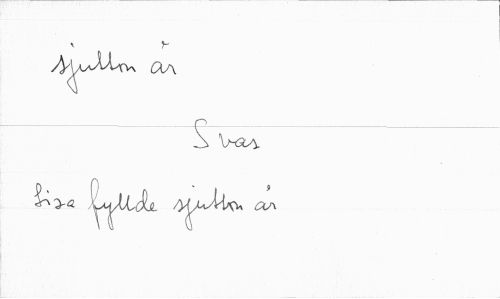 sjutton år
Svar
Lisa fyllde sjutton år